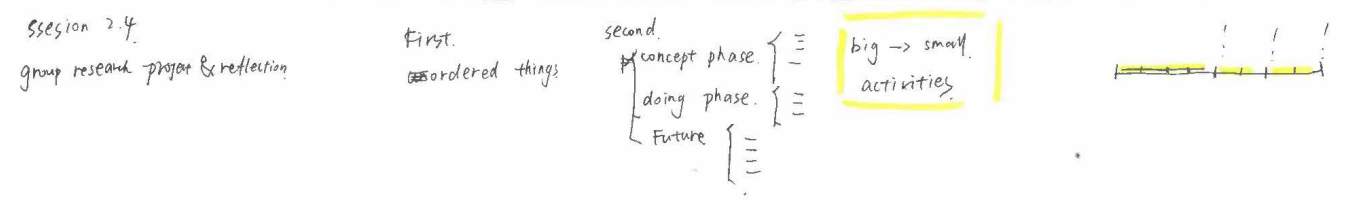 ssesion 2.4
group research project & reflection
First.
ordered things
second.
concept phase.
doing phase.
Future
big → small.
activities.